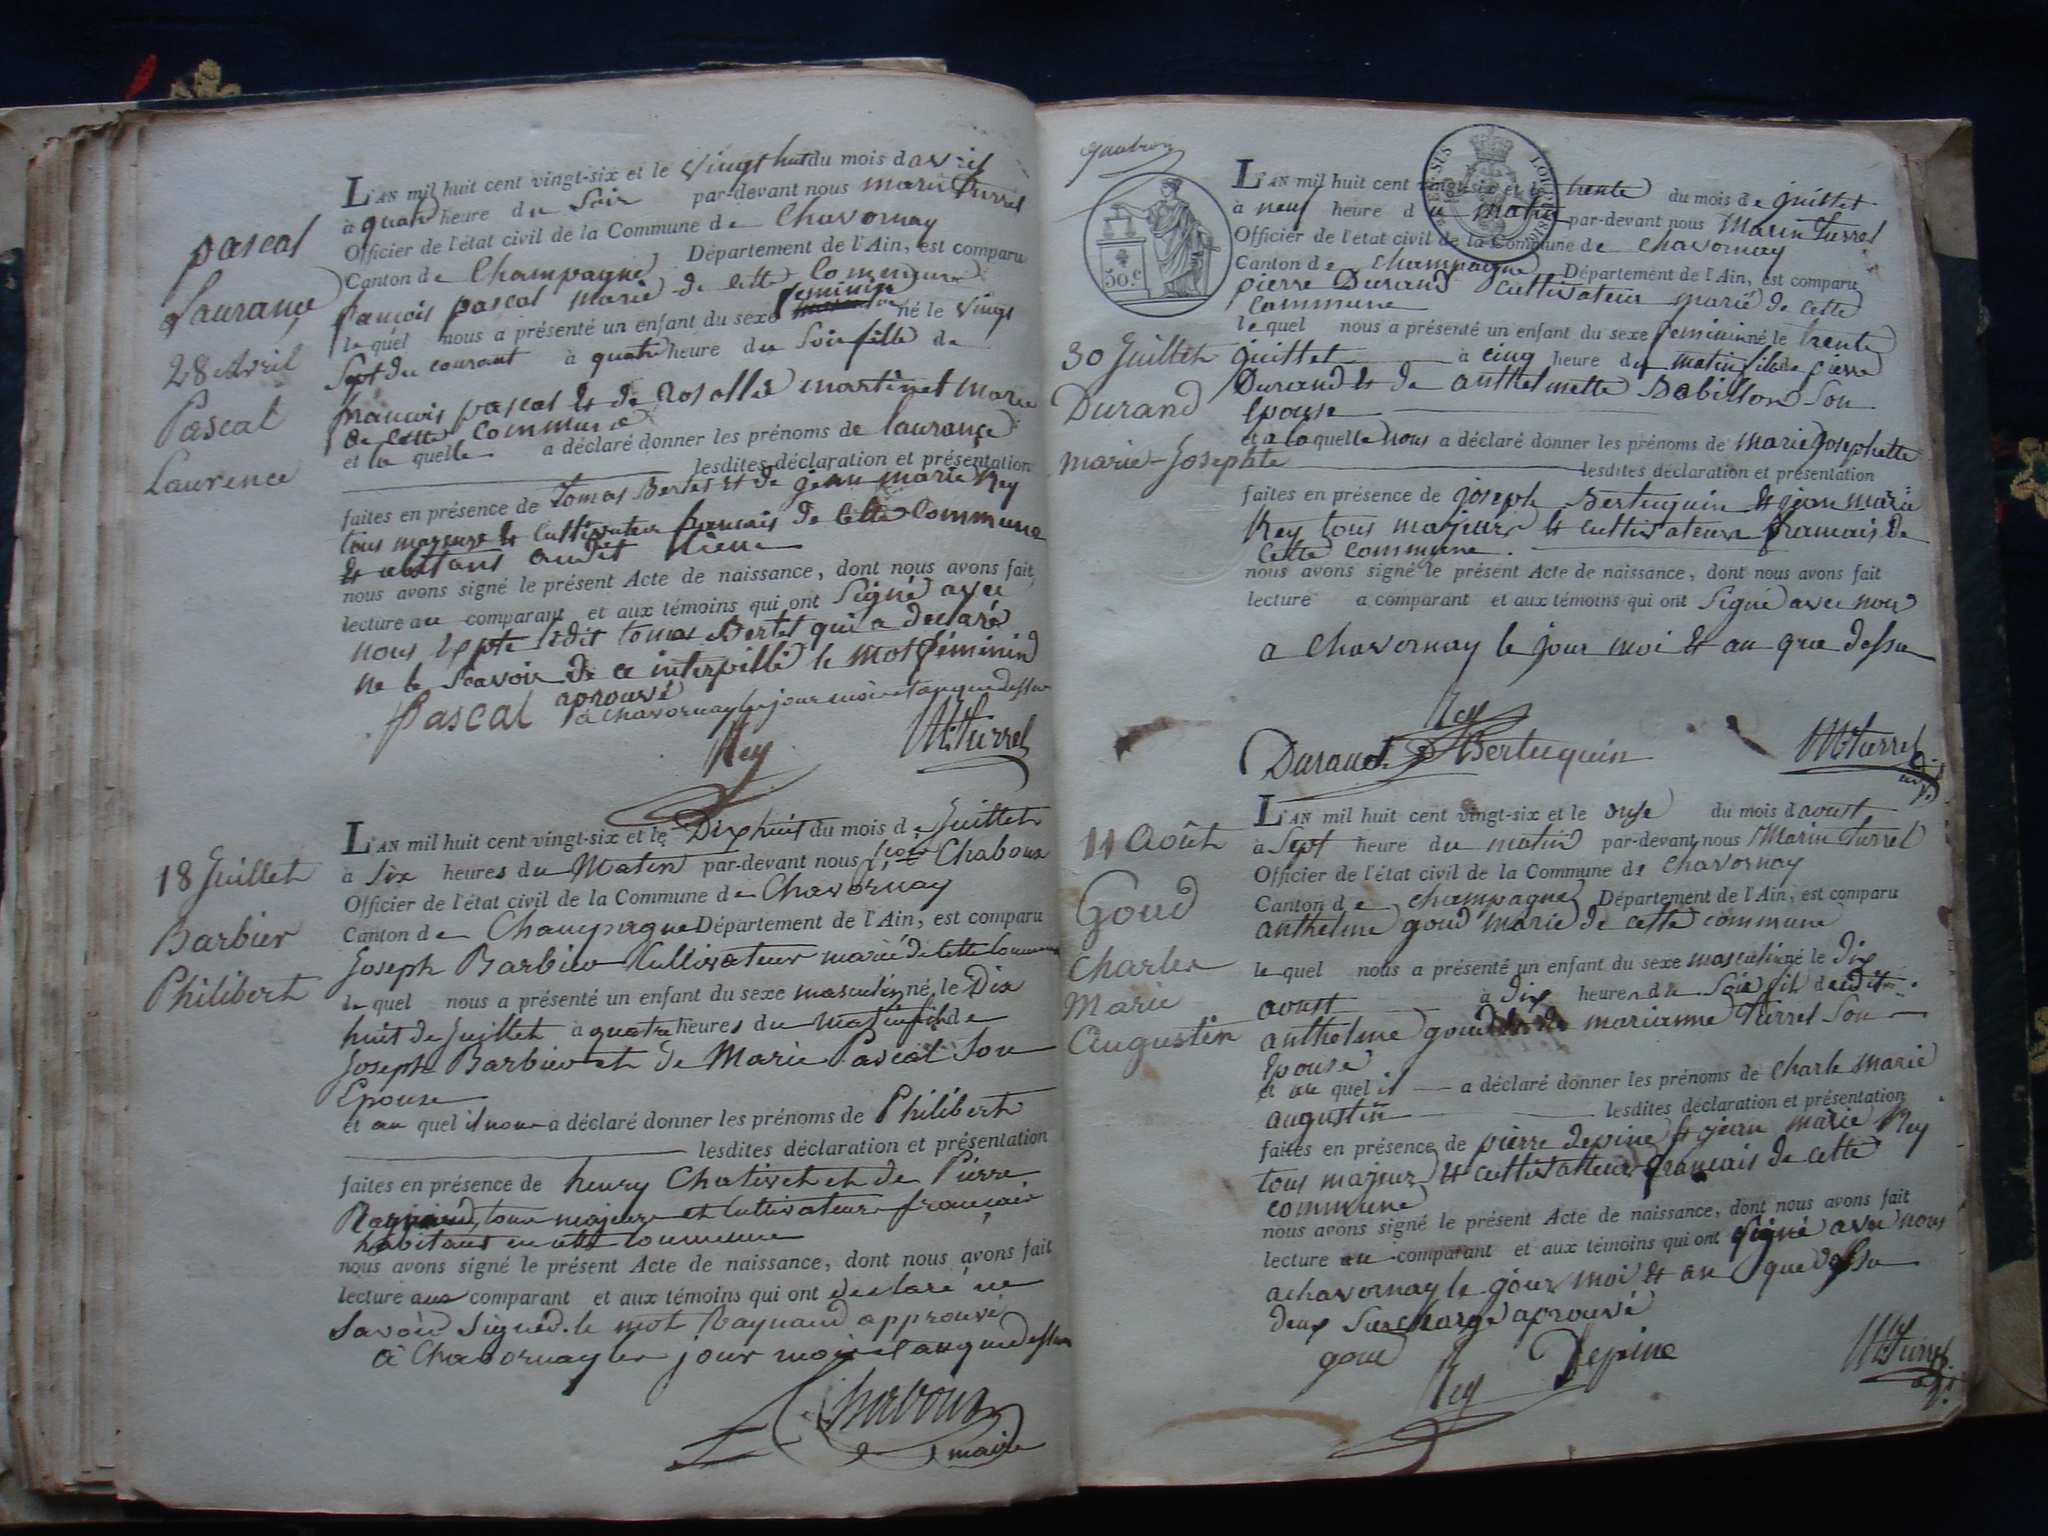 pascal
Laurance
28 Avril
Pascal
Laurence
L'AN mil huit cent vingt-six et le vingt huit du mois d avril
à quatre heure du Soir par-devant nous marin Turrel
Officier de l'état civil de la Commune de Chavornay
Canton de Champagne Département de l'Ain, est comparu
francois pascal marié de cette Commune
le quel nous a présenté un enfant du sexe feminin né le vingt
Sept du courant à quatre heure du Soir fille de
francois pascal & de Rosallie martinet marie
de cette commune
et la quelle a déclaré donner les prénoms de laurance
lesdites déclaration et présentation
faites en présence de Tomas Bertet & de jean marie Rey
tous majeurs & cultivateur francais de cette Commune
& abitans audit lieux
nous avons signé le présent Acte de naissance, dont nous avons fait
lecture au comparant et aux témoins qui ont Signé avec
nous exepte ledit tomas Bertet qui a declaré
ne le scavoir de ce interpillé le mot féminin
aprouvé
à chavornay le jour mois et an que dessus
Pascal
Rey
M. Turrel
18 Juillet
Barbier
Philibert
L'AN mil huit cent vingt-six et le Dix huit du mois de Juillet
à Six heures du Matin par-devant nous fçois Chaboux
Officier de l'état civil de la Commune de Chavornay
Canton de Champagne Département de l'Ain, est comparu
Joseph Barbier Cultivateur marié de cette Commune
le quel nous a présenté un enfant du sexe masculin né le Dix
huit de Juillet à quatre heures du Matin fils de
Joseph Barbier et de Marie Pascal Son
Epouse
et au quel il nous a déclaré donner les prénoms de Philibert
lesdites déclaration et présentation
faites en présence de henry Chativet et de Pierre
Raynaud, tous majeurs et Cultivateurs français
habitans en cette commune
nous avons signé le présent Acte de naissance, dont nous avons fait
lecture aux comparant et aux témoins qui ont declaré ne
Savoir Signer. le mot Raynaud approuvé
à Chavornay les jour mois et an que dessus
Chaboux
maire
gaubron
50 c
30 Juillet
Durand
marie-Josephte
L'AN mil huit cent vingt-six et le trente du mois de juillet
à neuf heure du matin par-devant nous Marin Turrel
Officier de l'état civil de la Commune de chavornay
Canton de champagne Département de l'Ain, est comparu
pierre Durand cultivateur marié de cette
Commune
le quel nous a présenté un enfant du sexe feminin né le trente
juillet à cinq heure du matin fille de pierre
Durand & de anthelmette Babillon Son
epouse
et a laquelle nous a déclaré donner les prénoms de marie Josephette
lesdites déclaration et présentation
faites en présence de joseph Bertuquin & jean marie
Rey tous majeurs & cultivateurs francais de
cette commune.
nous avons signé le présent Acte de naissance, dont nous avons fait
lecture a comparant et aux témoins qui ont Signé avec nous
a Chavornay le jour moi & an que dessu
Rey
Durand Bertuquin M. Turrel
11 Août
Goud
Charles
Marie
Augustin
L'AN mil huit cent vingt-six et le onse du mois d aoust
à Sept heure du matin par-devant nous Marin Turrel
Officier de l'état civil de la Commune de Chavornay
Canton de champagne Département de l'Ain, est comparu
anthelme goud marié de cette commune
le quel nous a présenté un enfant du sexe masculin né le dix
aoust à dix heure du Soir fils dudit
anthelme goud & de marianne Turrel Son
Epouse
et au quel il a déclaré donner les prénoms de Charle marie
augustin lesdites déclaration et présentation
faites en présence de pierre depine & jean marie Rey
tous majeurs & cultivatteur francais de cette
commune
nous avons signé le présent Acte de naissance, dont nous avons fait
lecture au comparant et aux témoins qui ont Signé avec nous
a chavornay le jour moi & an que dessu
deux Surcharge aprouvé
goud Rey Depine M. Turrel